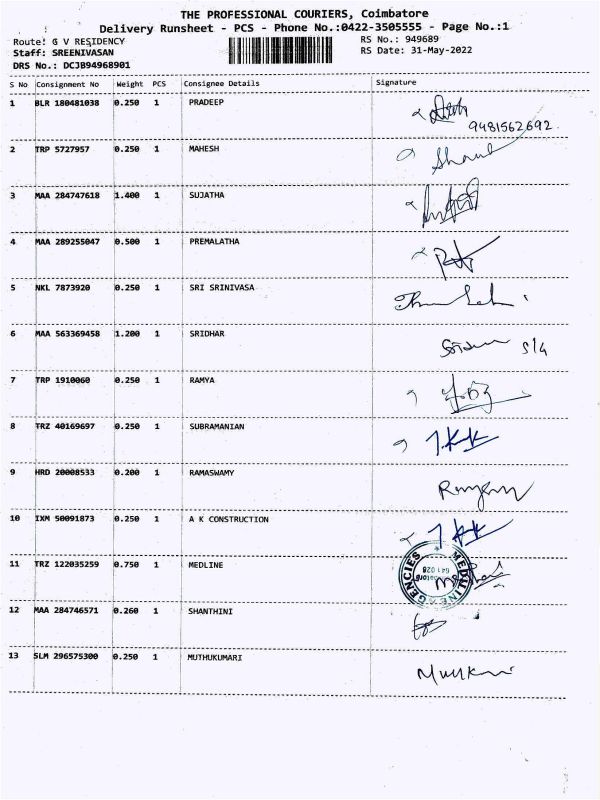 THE PROFESSIONAL COURIERS, Coimbatore
Delivery Runsheet - PCS - Phone No.:0422-3505555 - Page No.:1
Route: G V RESIDENCY RS No.: 949689
Staff: SREENIVASAN RS Date: 31-May-2022
DRS No.: DCJB94968901
S No Consignment No Weight PCS Consignee Details Signature
1 BLR 180481038 0.250 1 PRADEEP
9481562692
2 TRP 5727957 0.250 1 MAHESH
3 MAA 284747618 1.400 1 SUJATHA
4 MAA 289255047 0.500 1 PREMALATHA
5 NKL 7873920 0.250 1 SRI SRINIVASA
6 MAA 563369458 1.200 1 SRIDHAR
7 TRP 1910060 0.250 1 RAMYA
8 TRZ 40169697 0.250 1 SUBRAMANIAN
9 HRD 20008533 0.200 1 RAMASWAMY
10 IXM 50091873 0.250 1 A K CONSTRUCTION
11 TRZ 122035259 0.750 1 MEDLINE
MEDLINE AGENCIES
641 028
12 MAA 284746571 0.260 1 SHANTHINI
13 SLM 296575300 0.250 1 MUTHUKUMARI